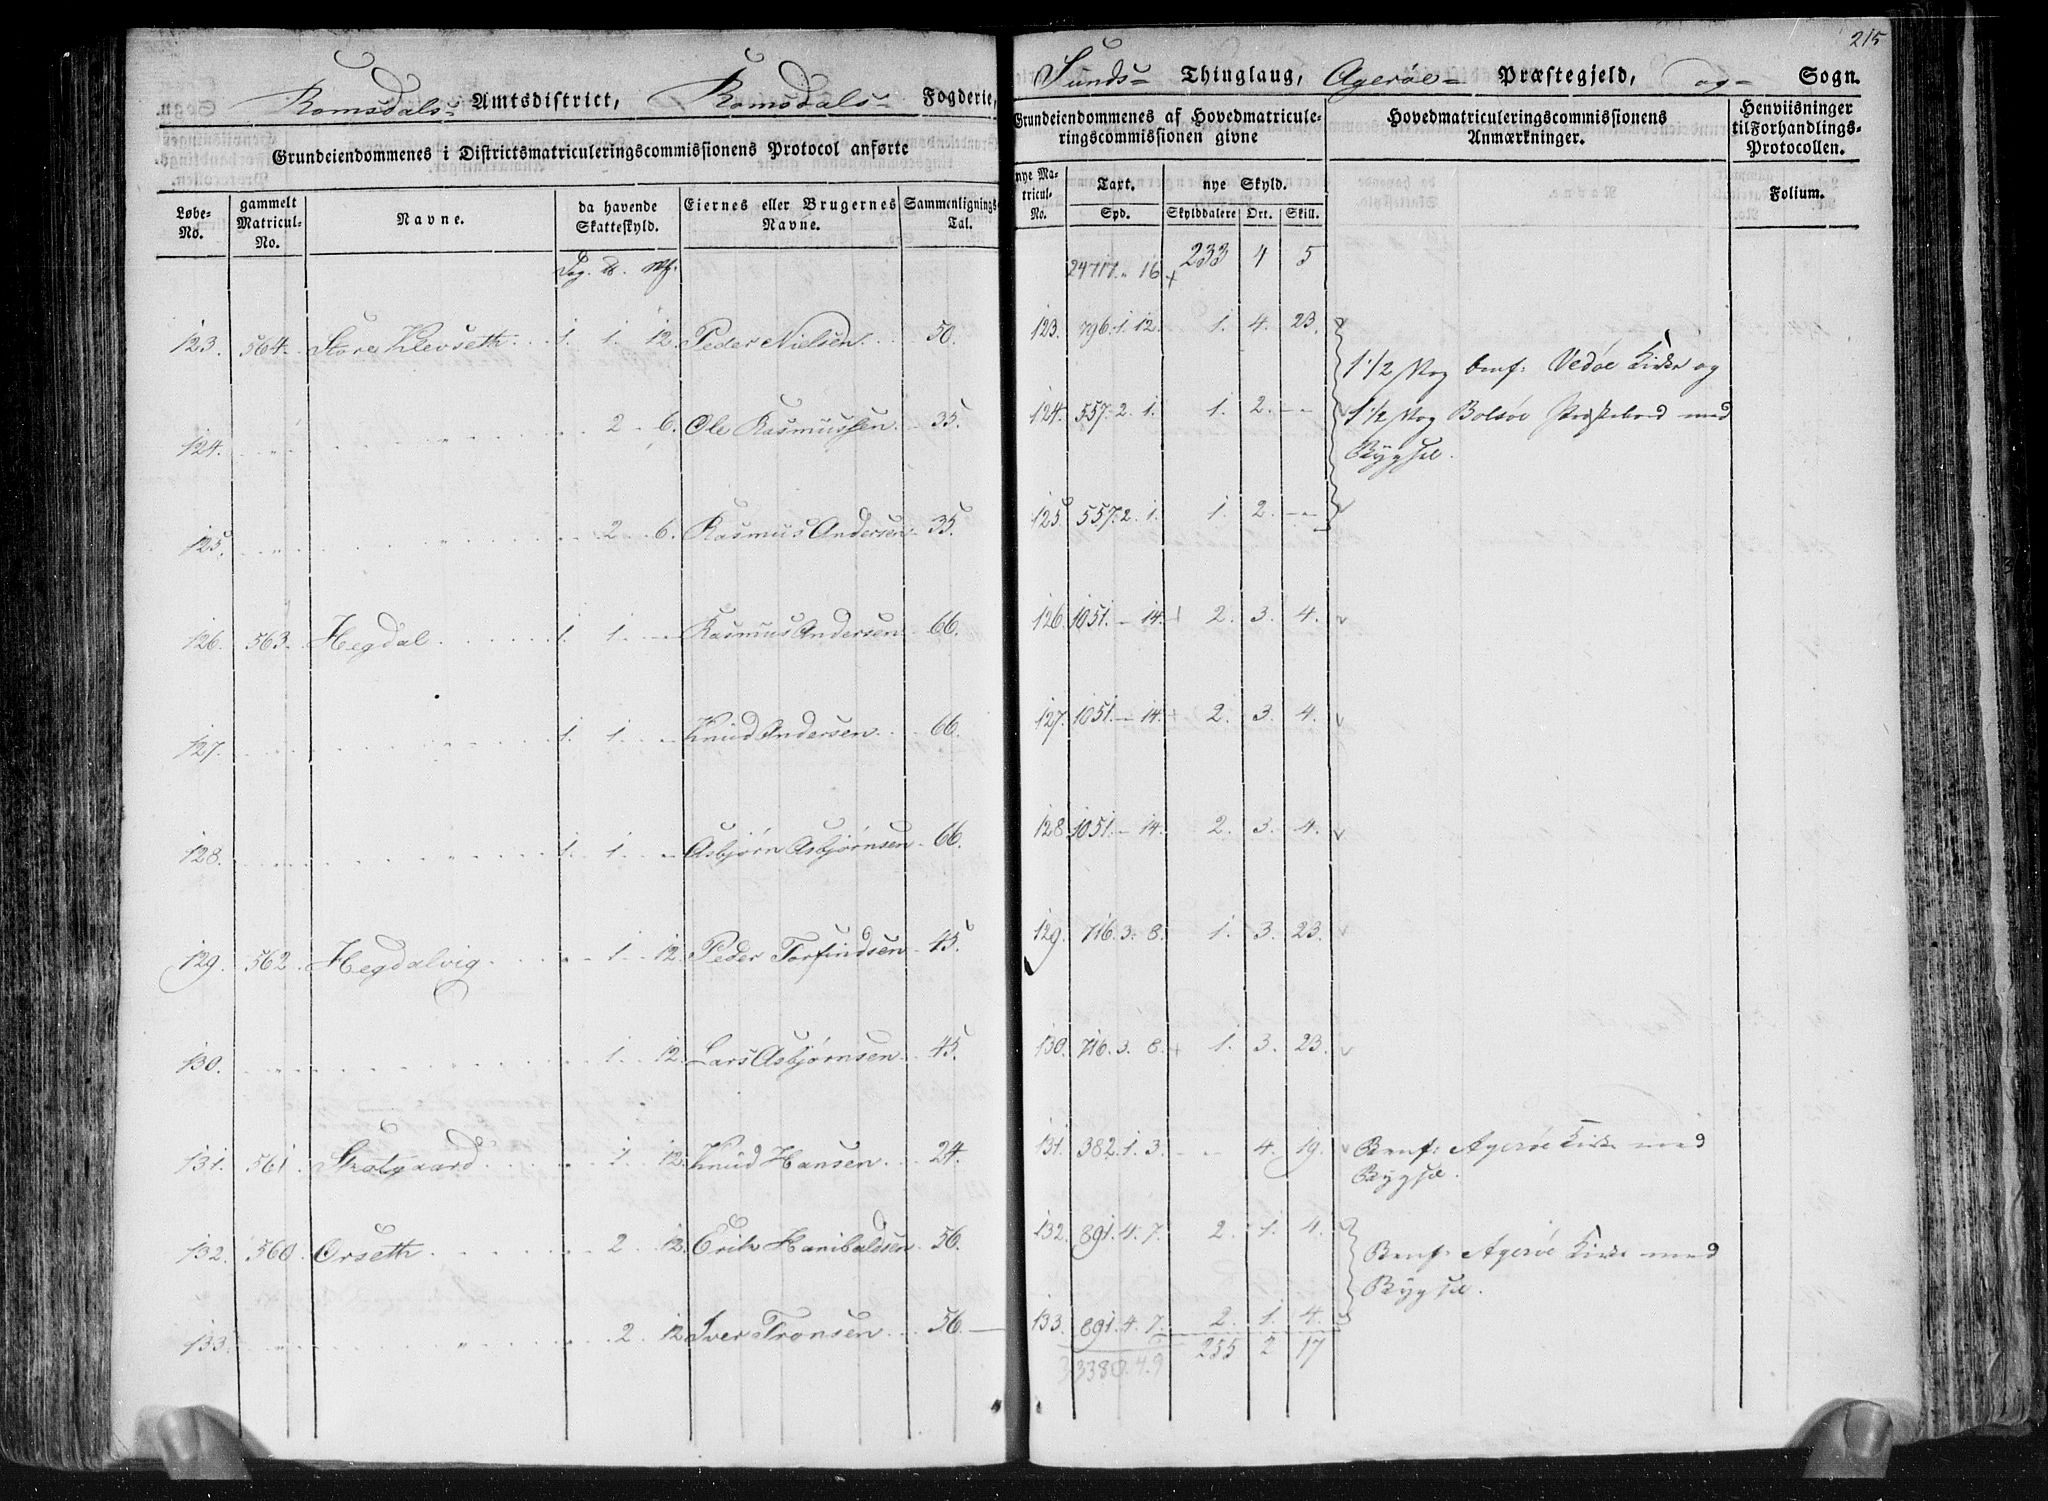 215
Romsdals Amtsdistrict, Romsdals Fogderie, Sunds Thinglaug, Agerøe Præstegjeld, og Sogn.
Grundeiendommenes i Districtsmatriculeringscommissionens Protocol anførte
Grundeiendommenes af Hovedmatriculeringscommissionen givne
Hovedmatriculeringscommissionens Anmærkninger.
Henviisninger til Forhandlings-Protocollen.
Løbe-No. gammelt Matricul-No. Navne. da havende Skatteskyld. Eiernes eller Brugernes Navne. Sammenlignings-Tal. nye Matricul-No. Taxt. Spd. nye Skyld. Skylddalere Ort. Skill. Folium.
24717. " 16 + 233 4 5
123. 564. Store Klevseth 1. 1. 12. Peder Nielsen 50. 123. 796.1.12. 1. 4. 23.
1 1/2 Vog benf: Vedøe Kirke og
124. " " 2 6. Ole Rasmussen 35. 124. 557.2.1. 1. 2. - - 1 1/2 Vog Bolsøe Præstebord med
Bygsel.
125. " " 2 6. Rasmus Andersen 35. 125. 557.2.1. 1. 2. - -
126. 563. Hegdal 1. 1. - Rasmus Andersen 66. 126. 1051. - 14. + 2. 3. 4.
127. " " 1. 1. - Knud Andersen 66. 127. 1051. - 14. + 2. 3. 4.
128. " " 1. 1. - Asbjørn Asbjørnsen 66. 128. 1051. - 14. 2. 3. 4.
129. 562. Hegdalvig - 1. 12. Peder Torfindsen 45. 129. 716.3.8. 1. 3. 23.
130. " " 1. 12. Lars Asbjørnsen 45. 130. 716.3.8. + 1. 3. 23.
131. 561. 1 12. Knud Hansen 24. 131. 382.1.3. - - 4. 19. Benf: Agerøe Kirke med
Bygsel.
132. 560. Orseth 2 12. Erik Hanibalsen 56. 132. 891.4.7. 2. 1. 4.
Benf: Agerøe Kirke med
Bygsel.
133. " " 2. 12. Iver Tronsen 56. 133. 891.4.7. 2. 1. 4.
33380.4.9 255 2 17